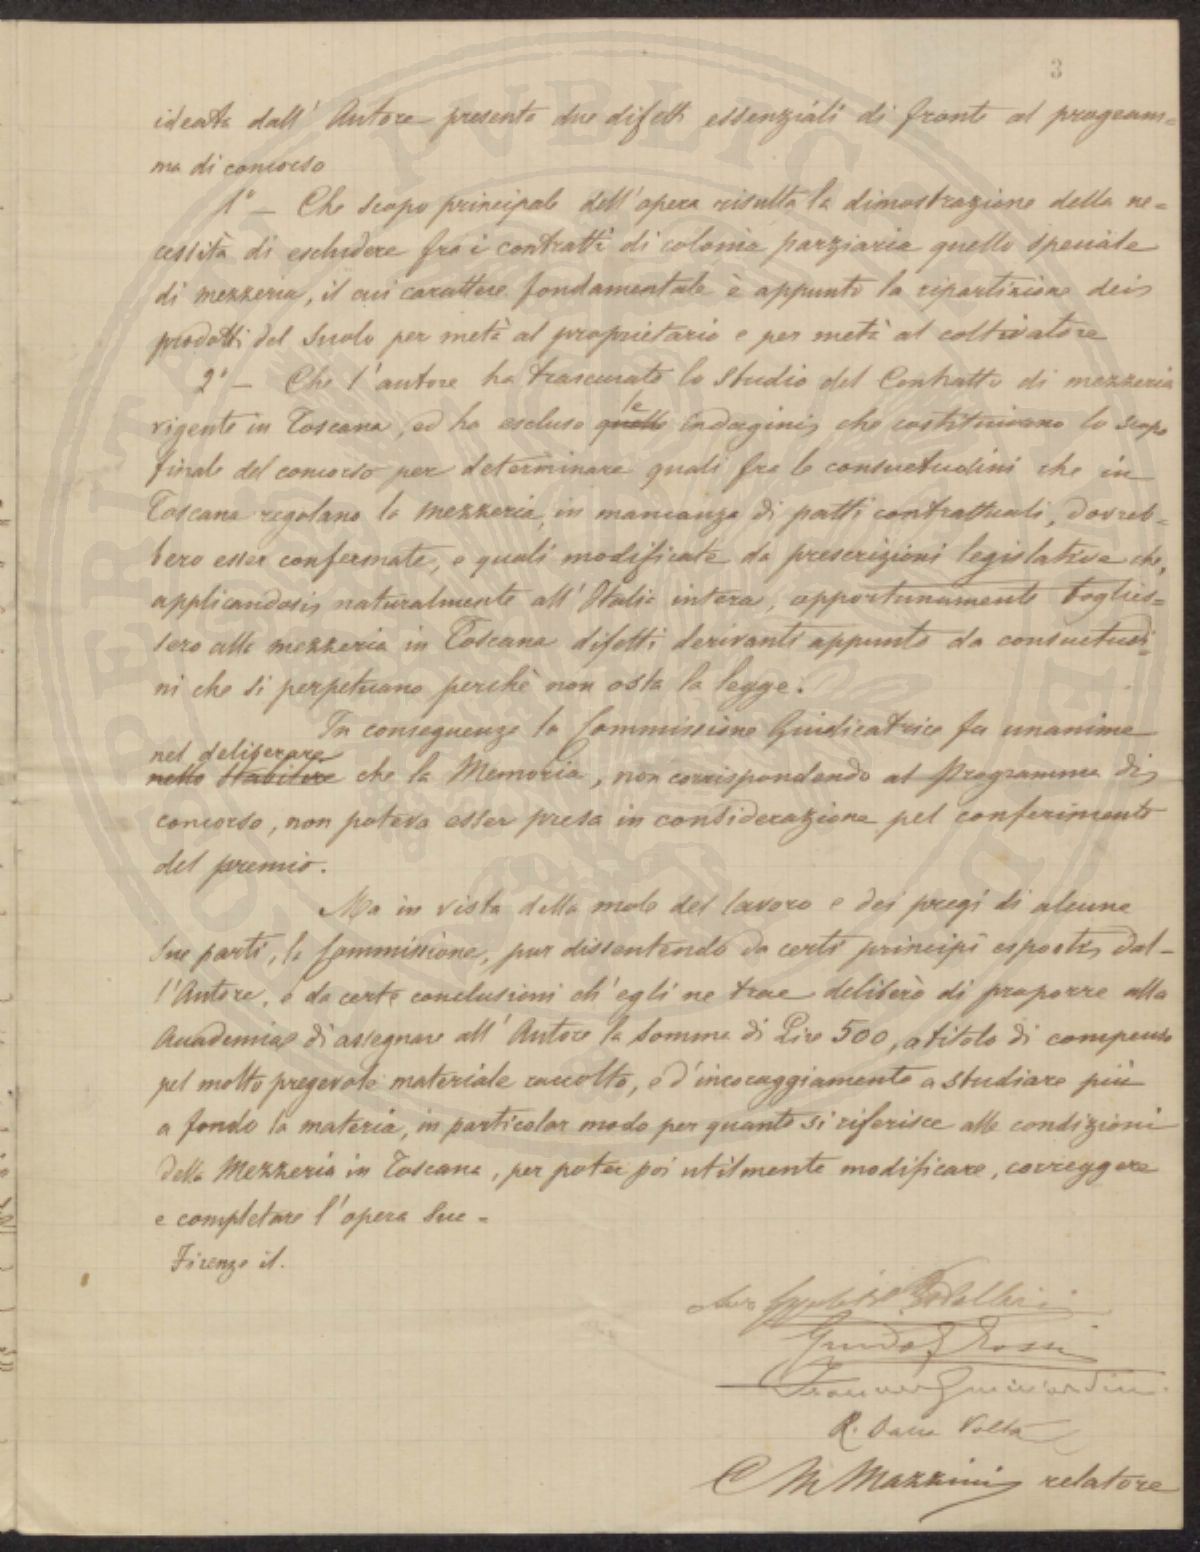 3
ideata dall' Autore presenta due difetti essenziali di fronte al program=
ma di concorso
1° — Che scopo principale dell'opera risulta la dimostrazione della ne=
cessità di escludere fra i contratti di colonia parziaria quello speciale
di mezzeria, il cui carattere fondamentale è appunto la ripartizione dei
prodotti del suolo per metà al proprietario e per metà al coltivatore
2° — Che l'autore ha trascurato lo studio del Contratto di mezzeria
vigente in Toscana, ed ha escluso quelle le indagini, che costituivano lo scopo
finale del concorso per determinare quali fra le consuetudini che in
Toscana regolano la mezzeria, in mancanza di patti contrattuali, dovreb=
bero esser confermate, e quali modificate da prescrizioni legislative che,
applicandosi, naturalmente all'Italia intera, opportunamente toglies=
sero alla mezzeria in Toscana difetti derivanti appunto da consuetudi=
ni che si perpetuano perchè non osta la legge.
In conseguenza la Commissione Giudicatrice fu unanime
nel deliberare
nello stabilire che la Memoria, non corrispondendo al Programma di
concorso, non poteva esser presa in considerazione pel conferimento
del premio.
Ma in vista della mole del lavoro e dei pregi di alcune
sue parti, la Commissione, pur dissentendo da certi principi esposti dal-
l'Autore, e da certe conclusioni ch'egli ne trae deliberò di proporre alla
Accademia di assegnare all'Autore la somma di Lire 500, a titolo di compenso
pel molto pregevole materiale raccolto, e d'incoraggiamento a studiare più
a fondo la materia, in particolar modo per quanto si riferisce alle condizioni
della Mezzeria in Toscana, per poter poi utilmente modificare, correggere
e completare l'opera sua -
Firenze il.
Guido Rossi
Francesco Guicciardini
R. Dalla Volta
C M Mazzini relatore